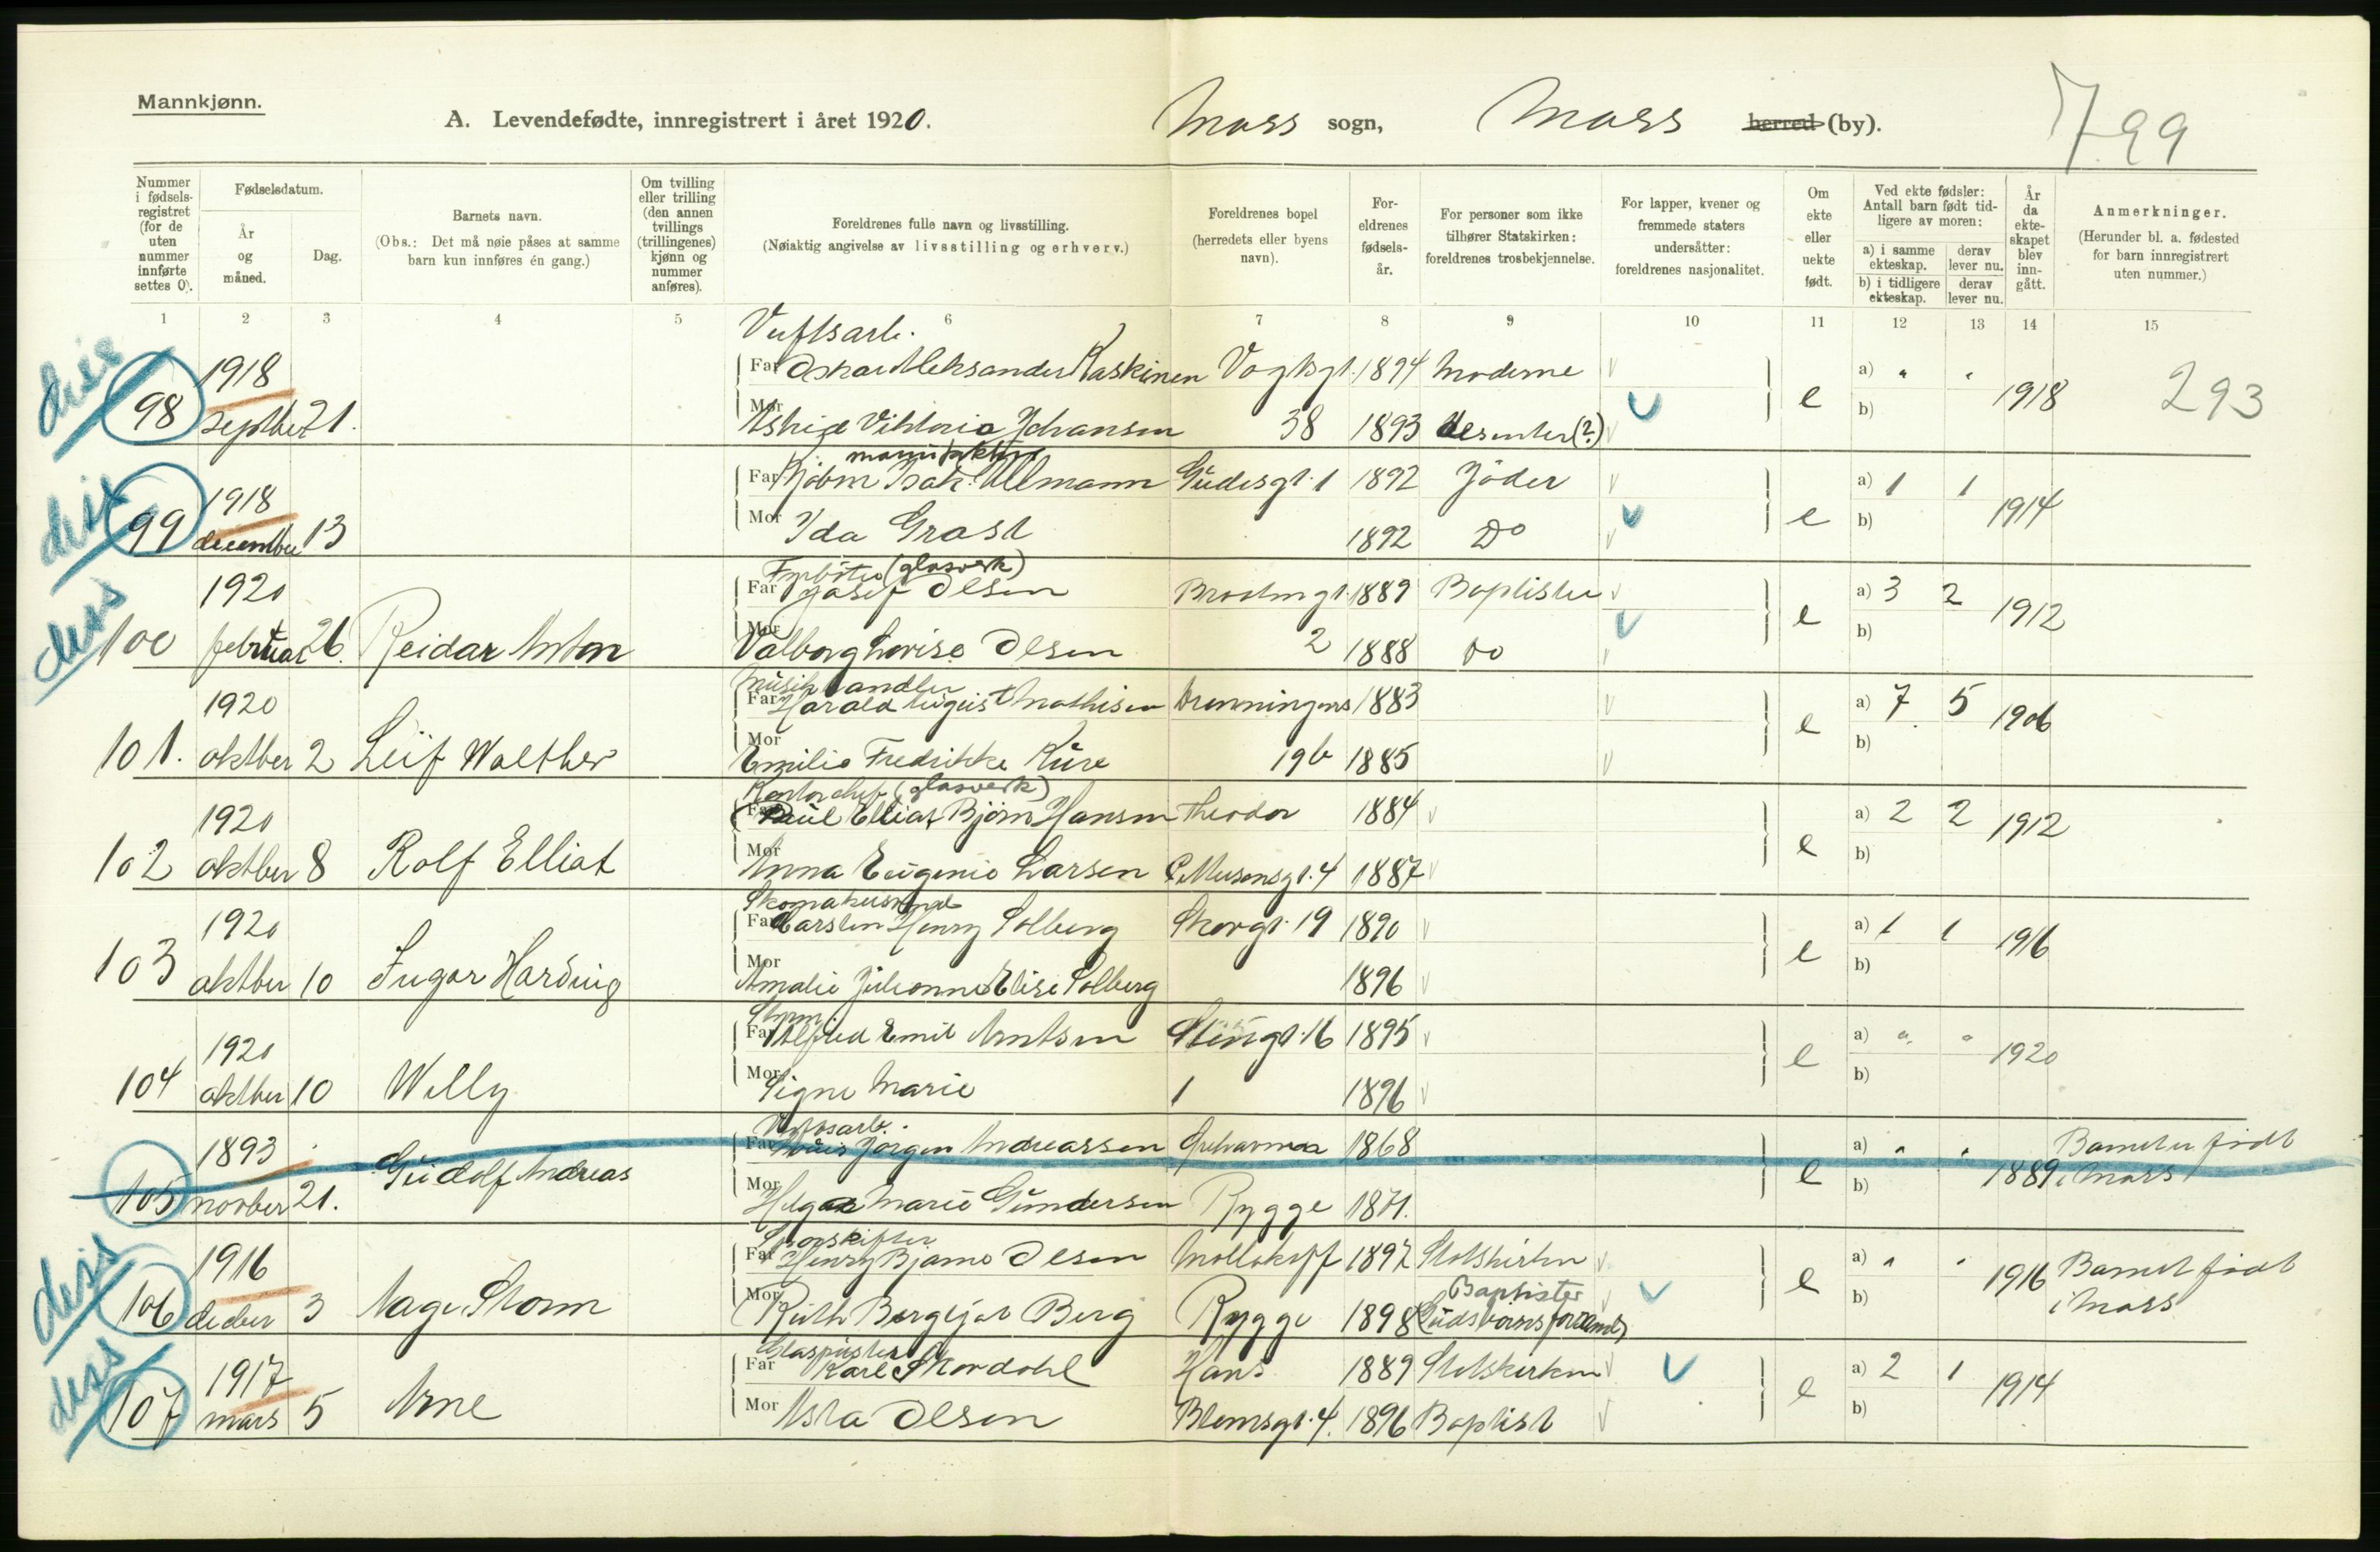 Mannkjønn.
A. Levendefødte, innregistrert i året 1920.
Moss sogn, Moss herred (by).
799
Nummer i fødselsregistret (for de uten nummer innførte settes 0).
Fødselsdatum.
År og måned.
Dag.
Barnets navn.
(Obs.: Det må nøie påses at samme barn kun innføres én gang.)
Om tvilling eller trilling (den annen tvillings (trillingenes) kjønn og nummer anføres).
Foreldrenes fulle navn og livsstilling.
(Nøiaktig angivelse av livsstilling og erhverv.)
Foreldrenes bopel (herredets eller byens navn).
Foreldrenes fødselsår.
For personer som ikke tilhører Statskirken: foreldrenes trosbekjennelse.
For lapper, kvener og fremmede staters undersåtter: foreldrenes nasjonalitet.
Om ekte eller uekte født.
Ved ekte fødsler: Antall barn født tidligere av moren:
a) i samme ekteskap. derav lever nu.
b) i tidligere ekteskap. derav lever nu.
År da ekteskapet blev inngått.
Anmerkninger.
(Herunder bl. a. fødested for barn innregistrert uten nummer.)
1 2 3 4 5 6 7 8 9 10 11 12 13 14 15
diss
98 1918 septbe 21.
Far Oskar Aleksander Kaskinen Vogtsgt. 1894
Mor Viktoria Johansen 38 1893 (?)
e a) " " b) 1918 293
diss
99 1918 december 13
Far Isak Ullmann Gudesgt. 1 1892 Jöder
Mor Ida Grast 1892 Do
e a) 1 1 b) 1914
diss
100 1920 februar 26. Reidar Anton
Fyrböter (glasverk)
Far Josef Olsen 1889 Baptister
Mor Valborg Lovise Olsen 2 1888 Do
e a) 3 2 b) 1912
101. 1920 oktber 2 Leif Walther
Musikhandler
Far Harald August Mathisen Dronningens 1883
Mor Emilie Fredrikke Kure 19b 1885
e a) 7 5 b) 1906
102 1920 oktber 8 Rolf Elliot
Kontorchef (glasverk)
Far Paul Ellias Bjørn Hansen Theodor 1884
Mor Anna Eugenie Larsen Petersensgt. 4 1887
e a) 2 2 b) 1912
103 1920 oktber 10 Ingar Harding
Far Carsten Henry Solberg Skovgt. 19 1890
Mor Amalie Julianne Elise Solberg 1896
e a) 1 1 b) 1916
104 1920 oktber 10 Willy
Styrm
Far Alfred Emil Arntsen 16 1895
Mor Signe Marie 1 1896
e a) " " b) 1920
105 1893 novber 21. Gudolf Andreas
Verftsarb.
Far Jörgen Andreassen 1868
Mor Helga Marie Gundersen Rygge 1871.
e a) " " b) 1889 Barnet er födt i Moss
diss
106 1916 decber 3 Aage Storm
Sporskifter
Far Henry Bjarne Olsen 1897 Statskirken
Mor Ruth Bergljot Berg Rygge 1898 Baptister
e a) " " b) 1916 Barnet födt i Moss
diss
107 1917 mars 5 Arne
Glaspuster
Far Karl Skordahl Hans 1889 Statskirken
Mor Asta Olsen Blomsgt. 4. 1896 Baptist
e a) 2 1 b) 1914